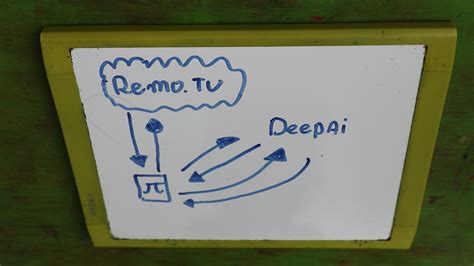 Remo.TV
DeepAi
π